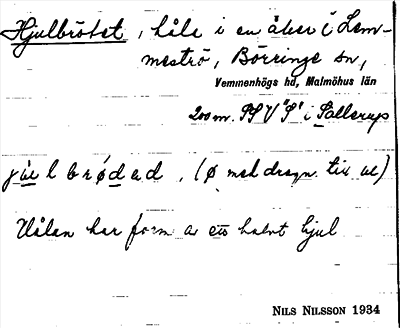 Hjulbrötet, håla i en åker i Lem-
meströ, Börringe sn,
Vemmenhögs hd, Malmöhus län
200 m. SSV "S" i Sallerup
julbrødad, (ø med dragn. till œ)
Hålan har form av ett halvt hjul
NILS NILSSON 1934